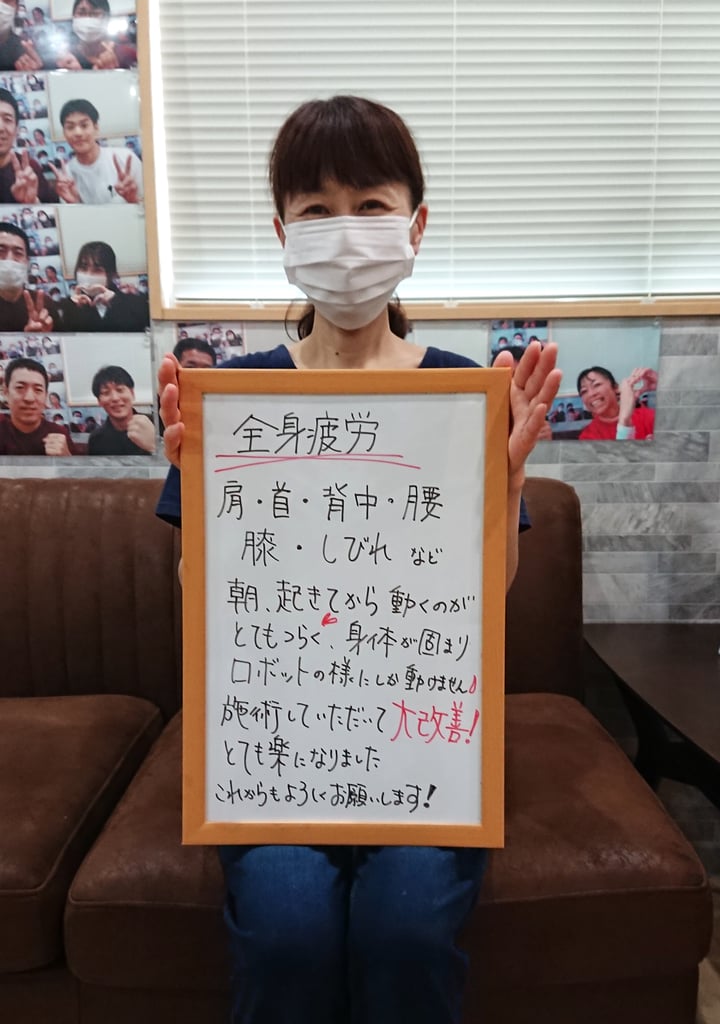 全身疲労
肩・首・背中・腰
膝・しびれ など
朝、起きてから 動くのが
とてもつらく、身体が固まり
ロボットの様にしか動けません
施術していただいて 大改善!
とても楽になりました
これからもよろしくお願いします!